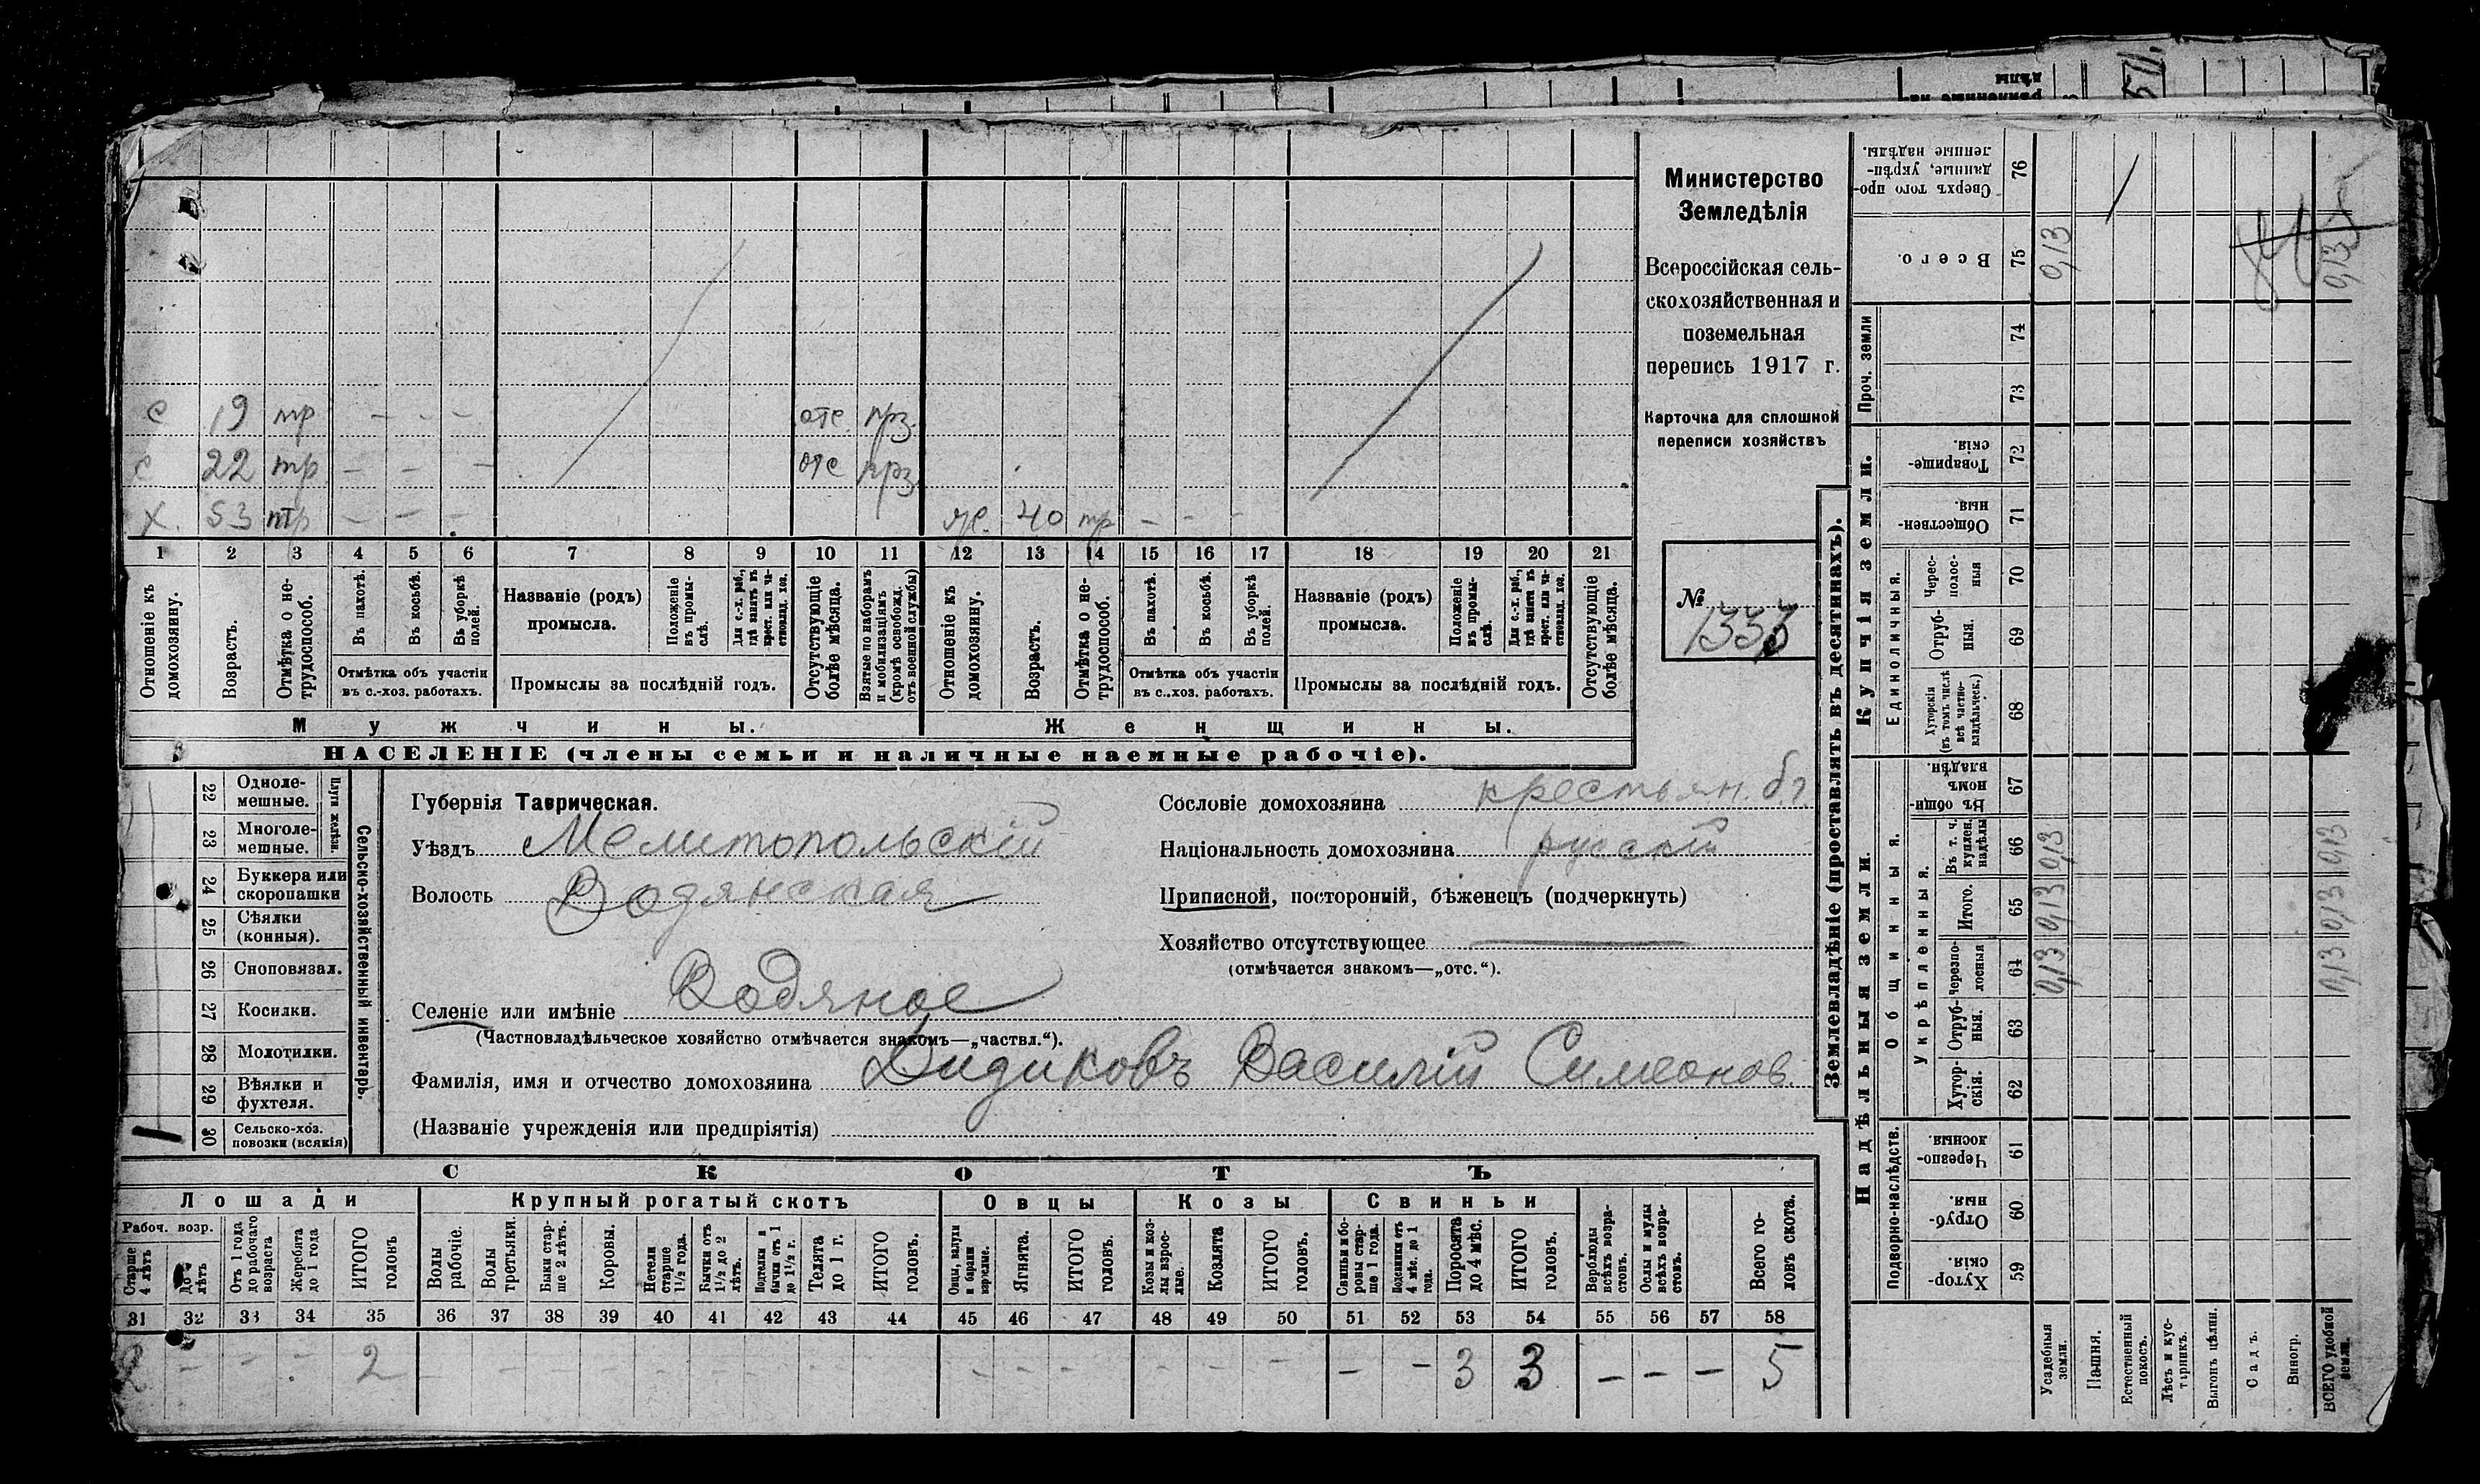 Министерство
Земледѣлія
Всероссійская сель-
скохозяйственная и
поземельная
перепись 1917 г.
Карточка для сплошной
переписи хозяйствъ
№
1353
с 19 тр - - - отс. прз.
с 22 тр - - - отс прз.
х. 53 тр - - - 40 тр - - -
1 2 3 4 5 6 7 8 9 10 11 12 13 14 15 16 17 18 19 20 21
Отношеніе къ домохозяину.
Возрастъ.
Отмѣтка о не-
трудоспособ.
Въ пахотѣ.
Въ косьбѣ.
Въ уборкѣ полей.
Отмѣтка объ участіи
въ с.-хоз. работахъ.
Названіе (родъ)
промысла.
Положеніе въ промы-
слѣ.
Для с.-х. раб.,
гдѣ занятъ въ
крест. или ча-
стновлад. хоз.
Промыслы за послѣдній годъ.
Отсутствующіе болѣе мѣсяца.
Взятые по наборамъ
и мобилизаціямъ
(кромѣ освобожд.
отъ военной службы)
Отношеніе къ домохозяину.
Возрастъ.
Отмѣтка о не-
трудоспособ.
Въ пахотѣ.
Въ косьбѣ.
Въ уборкѣ полей.
Отмѣтка объ участіи
въ с.-хоз. работахъ.
Названіе (родъ)
промысла.
Положеніе въ промы-
слѣ.
Для с.-х. раб.,
гдѣ занята въ
крест. или ча-
стновлад. хоз.
Промыслы за послѣдній годъ.
Отсутствующіе болѣе мѣсяца.
Мужчины.
Женщины.
НАСЕЛЕНІЕ (члены семьи и наличные наемные рабочіе).
22 Одноле-
мешные.
23 Многоле-
мешные.
Плуги желѣзн.
24 Буккера или
скоропашки
25 Сѣялки
(конныя).
26 Сноповязал.
27 Косилки.
28 Молотилки.
29 Вѣялки и
фухтеля.
30 Сельско-хоз.
повозки (всякія)
Сельско-хозяйственный инвентарь.
Губернія Таврическая.
Уѣздъ Мелитопольскій
Волость Водянская
Селеніе или имѣніе Водяное
(Частновладѣльческое хозяйство отмѣчается знакомъ—„частвл.“).
Фамилія, имя и отчество домохозяина Дидиковъ Василій Симеонов
(Названіе учрежденія или предпріятія)
Сословіе домохозяина крестьян.
Національность домохозяина русскій
Приписной, посторонній, бѣженецъ (подчеркнуть)
Хозяйство отсутствующее
(отмѣчается знакомъ—„отс.“).
СКОТЪ
Лошади
Крупный рогатый скотъ
Овцы
Козы
Свиньи
Рабоч. возр.
Старше 4 лѣтъ
До 4 лѣтъ
Отъ 1 года
до рабочаго
возраста
Жеребята
до 1 года
ИТОГО головъ
Волы рабочіе.
Волы третьяки.
Быки стар-
ше 2 лѣтъ.
Коровы.
Нетели старше
1½ года.
Бычки отъ
1½ до 2 лѣтъ.
Подтелки и
бычки отъ 1
до 1½ г.
Телята до 1 г.
ИТОГО головъ.
Овцы, валухи
и бараны
взрослые.
Ягнята.
ИТОГО головъ.
Козы и коз-
лы взрос-
лые.
Козлята
ИТОГО головъ.
Свиньи и бо-
ровы стар-
ше 1 года.
Подсвинки отъ
4 мѣс. до 1
года.
Поросята до 4 мѣс.
ИТОГО головъ.
Верблюды
всѣхъ возра-
стовъ.
Ослы и мулы
всѣхъ возра-
стовъ.
Всего го-
ловъ скота.
31 32 33 34 35 36 37 38 39 40 41 42 43 44 45 46 47 48 49 50 51 52 53 54 55 56 57 58
2 - - - 2 - - - - - - - - - - - - - - - - 3 3 - - - 5
Землевладѣніе (проставлять въ десятинахъ).
Сверхъ того про-
данные, укрѣп-
ленные надѣлы.
76
Всего. 75
Проч. земли
74
73
Купчія земли.
Товарище-
скія. 72
Обществен-
ныя 71
Единоличныя.
Черес-
полос-
ныя 70
Отруб-
ныя. 69
Хуторскія
(въ томъ числѣ
всѣ частно-
владѣльческ.) 68
Надѣльныя земли.
Общинныя.
Въ общин-
номъ
владѣн. 67
Укрѣпленныя.
Въ т. ч.
куплен.
надѣлы 66
Итого. 65
Черезпо-
лосныя 64
Отруб-
ныя. 63
Хутор-
скія. 62
Подворно-наслѣдств.
Черезпо-
лосныя. 61
Отруб-
ныя. 60
Хутор-
скія. 59
Усадебныя земли.
Пашня.
Естественный покосъ.
Лѣсъ и кус-
тарникъ.
Выгонъ цѣлин.
Садъ.
Виногр.
ВСЕГО удобной земли.
0,13
0,13 0,13 0,13
0,13
0,13 0,13 0,13